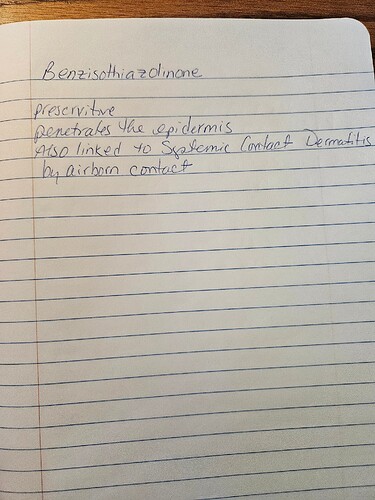 Benzisothiazolinone
preservitive
penetrates the epidermis
Also linked to Systemic Contact Dermatitis
by airborn contact